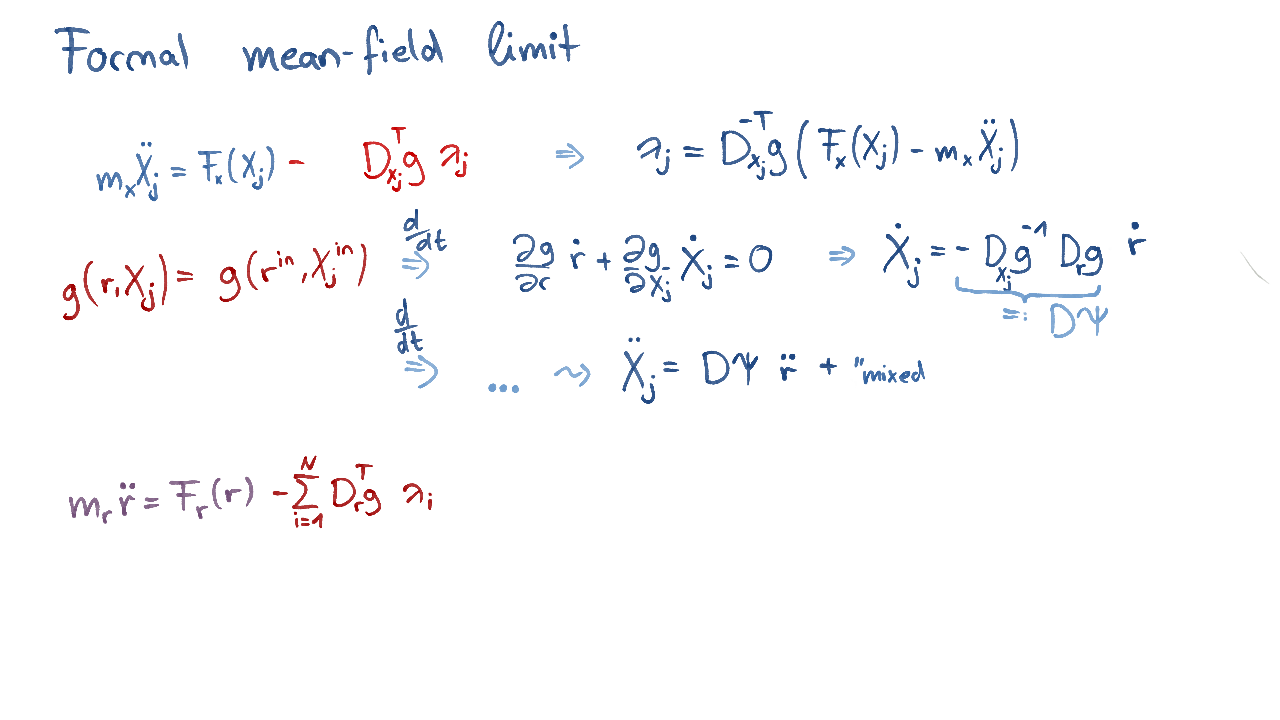 Formal mean-field limit
m_x Ẍ_j = F_x(X_j) - D_{x_j}^T g λ_j ⇒ λ_j = D_{x_j}^{-T} g ( F_x(X_j) - m_x Ẍ_j )
g(r, X_j) = g(r^{in}, X_j^{in}) d/dt ⇒ ∂g/∂r ṙ + ∂g/∂X_j Ẋ_j = 0 ⇒ Ẋ_j = - D_{x_j} g^{-1} D_r g ṙ
=: DΨ
d/dt ⇒ ... ⇝ Ẍ_j = DΨ r̈ + "mixed
m_r r̈ = F_r(r) - ∑_{i=1}^N D_r^T g λ_i